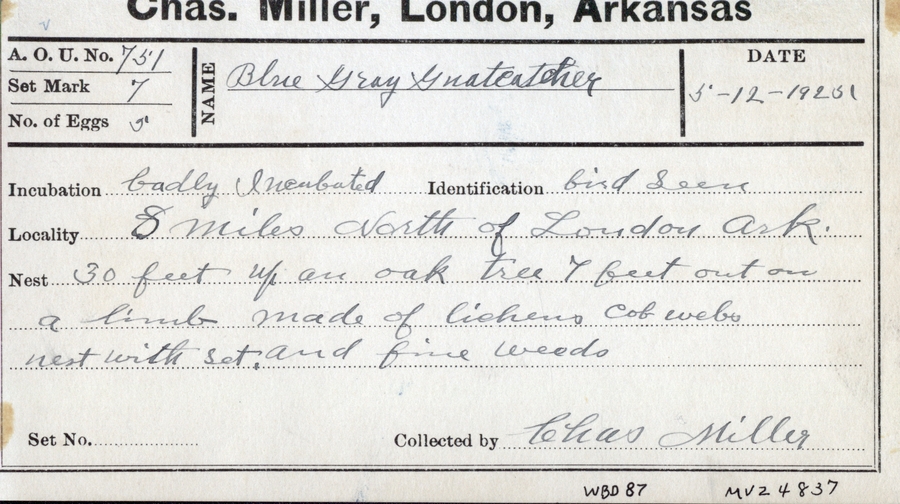 Chas. Miller, London, Arkansas
A. O. U. No. 751
Set Mark 7
No. of Eggs 5
NAME Blue Gray Gnatcatcher
DATE
5-12-1925
Incubation badly Incubated Identification bird seen
Locality 8 miles North of London Ark.
Nest 30 feet up an oak tree 7 feet out on
a limb made of lichens cob webs
nest with set. and fine weeds
Set No.
Collected by Chas Miller
WBD 87 MVZ 4837